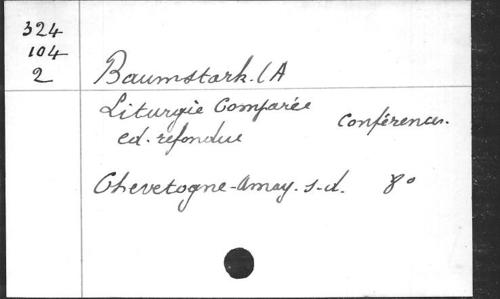 324
104
2
Baumstark. (A
Liturgie Comparée
Conférences.
ed. refondue
Chevetogne-Amay. s.d. 8°